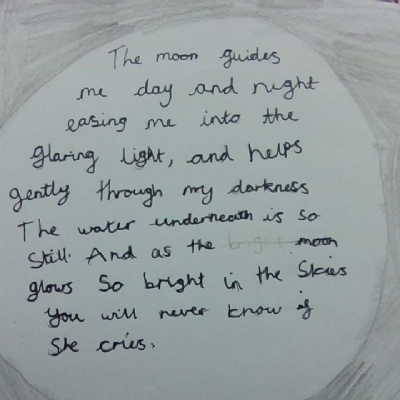 The moon guides
me day and night
easing me into the
glaring light, and helps
gently through my darkness
The water underneath is so
still. And as the bright moon
glows so bright in the skies
You will never know if
She cries.